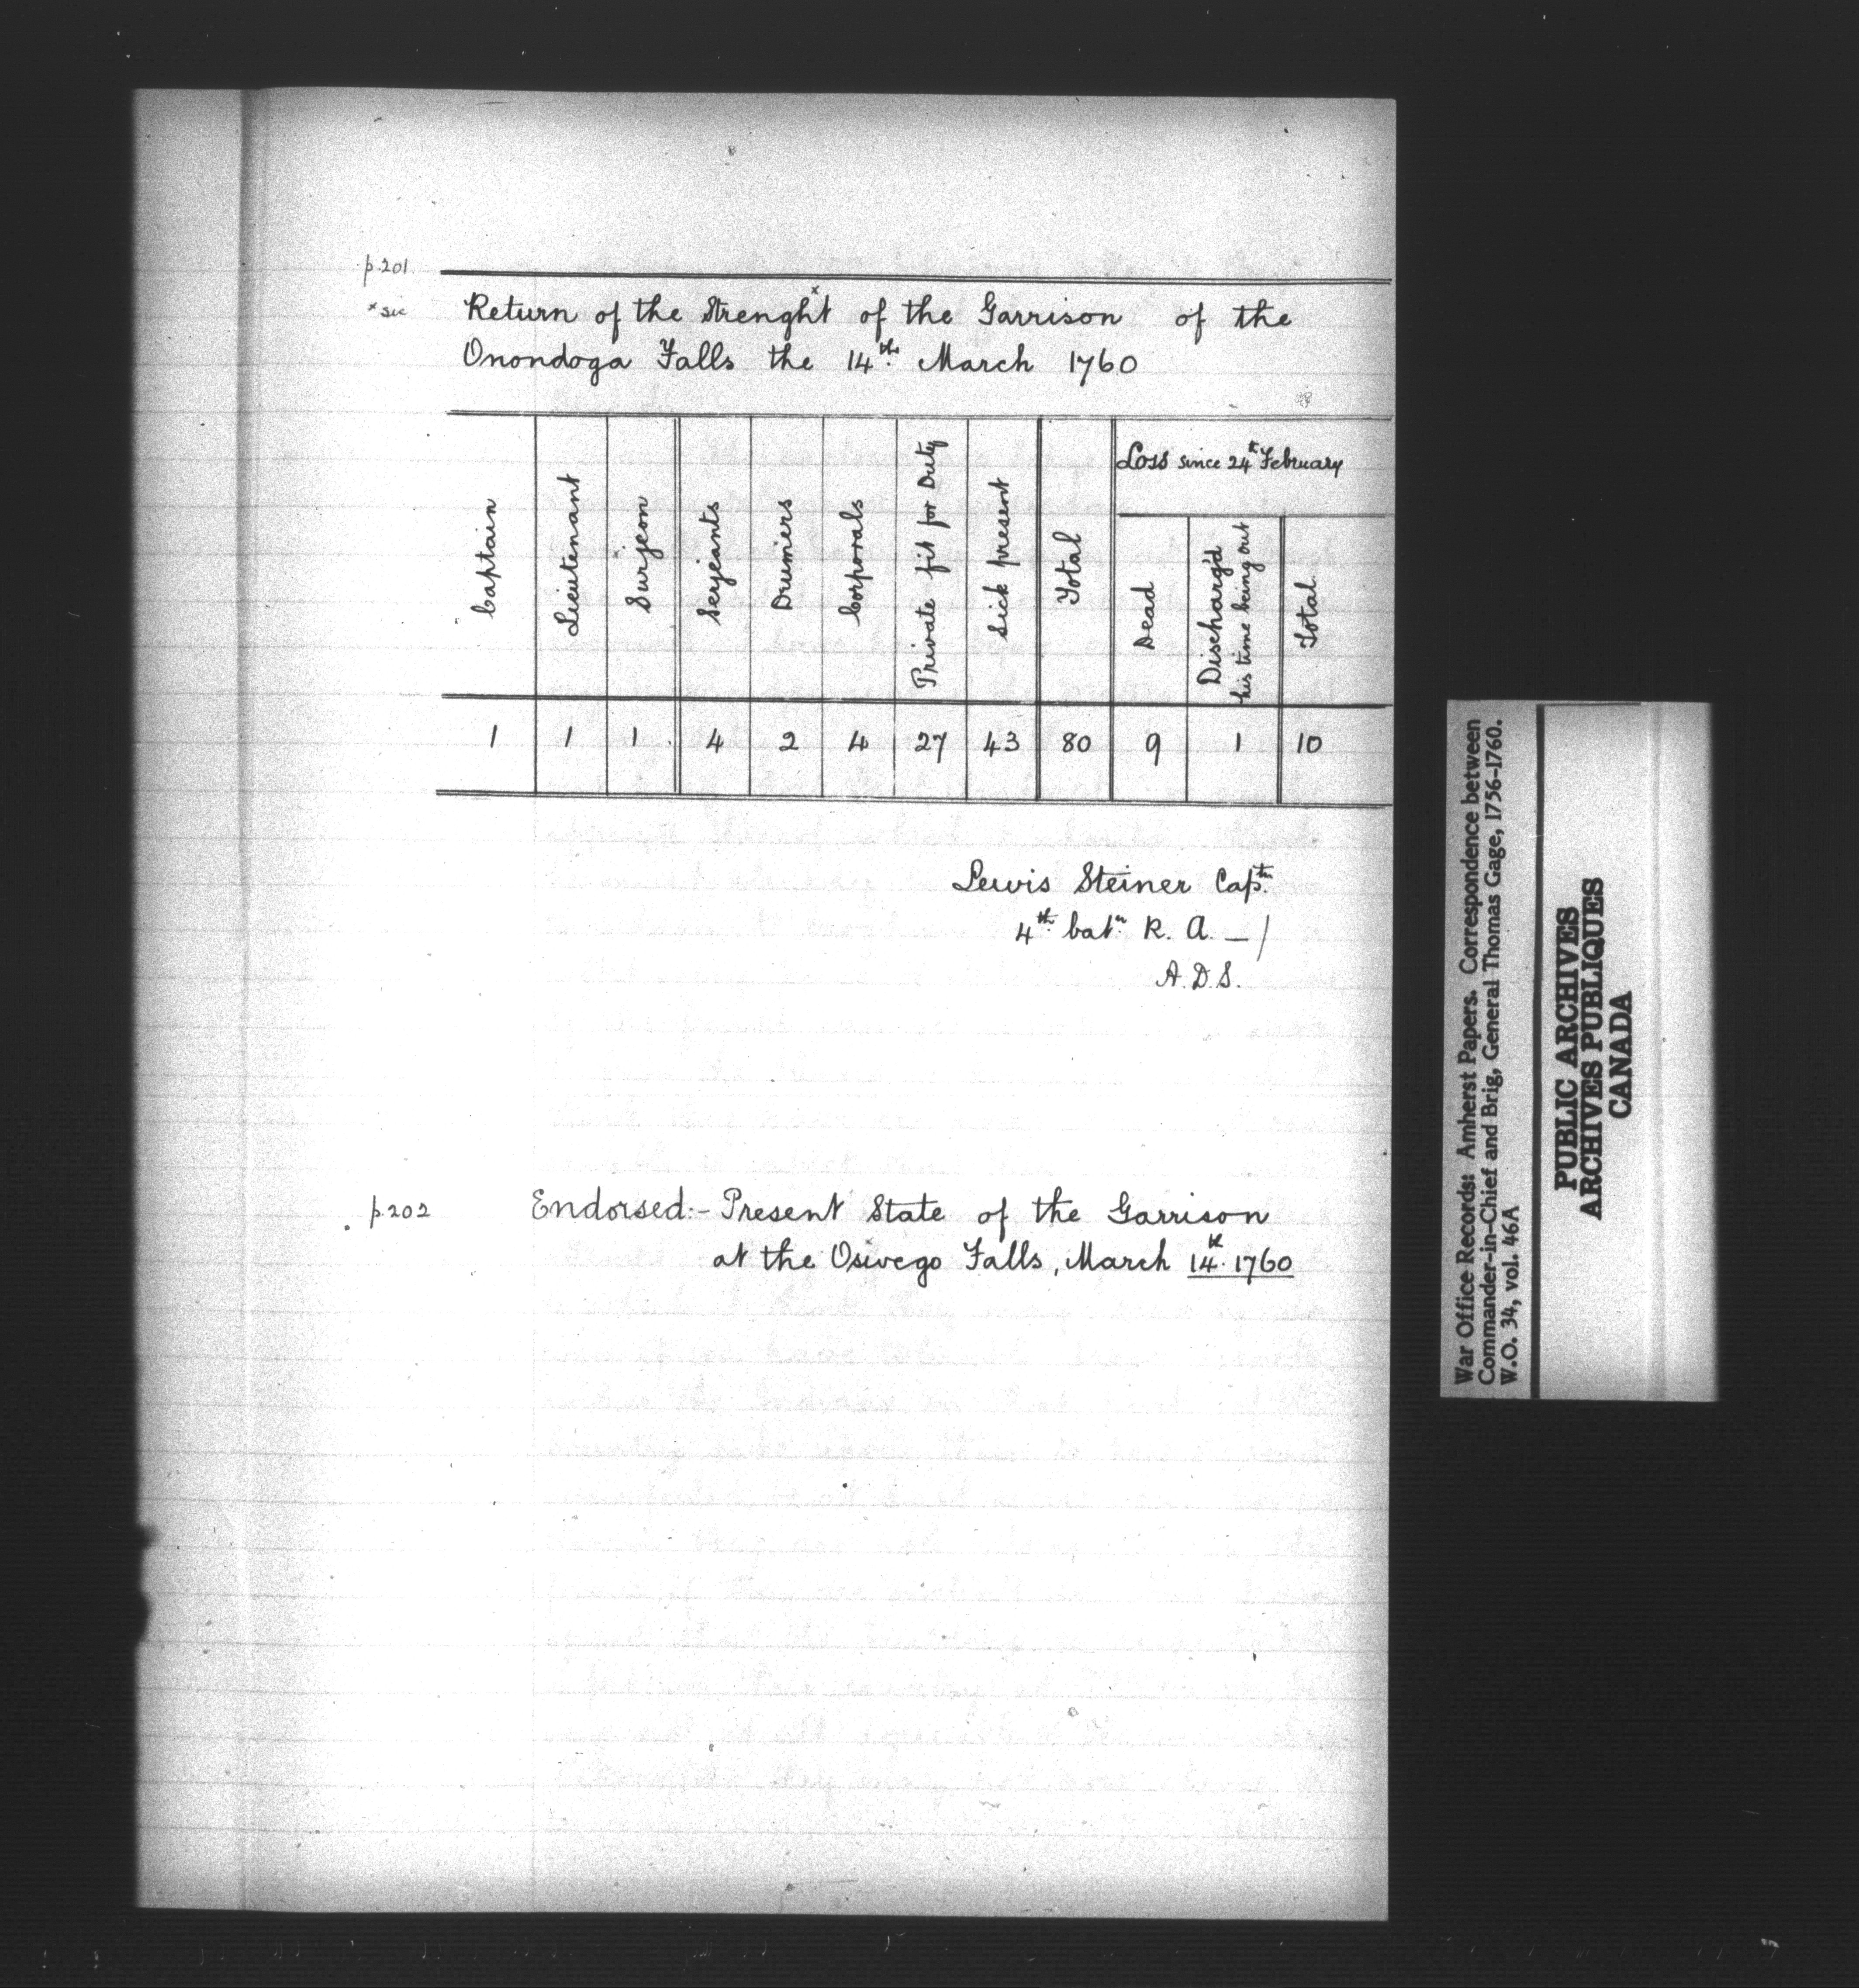 p.201
* sic
Return of the Strenght* of the Garrison of the
Onondoga Falls the 14th March 1760
Captain | Lieutenant | Surjeon | Serjeants | Drumers | Corporals | Private fit for Duty | Sick present | Total | Loss since 24th February
Dead | Discharg'd his time being out | Total
1 | 1 | 1 | 4 | 2 | 4 | 27 | 43 | 80 | 9 | 1 | 10
Lewis Steiner Captn
4th batn R. A. —/
A.D.S.
p.202
Endorsed:- Present State of the Garrison
at the Oswego Falls, March 14th 1760
War Office Records: Amherst Papers. Correspondence between
Commander-in-Chief and Brig, General Thomas Gage, 1756-1760.
W.O. 34, vol. 46A
PUBLIC ARCHIVES
ARCHIVES PUBLIQUES
CANADA